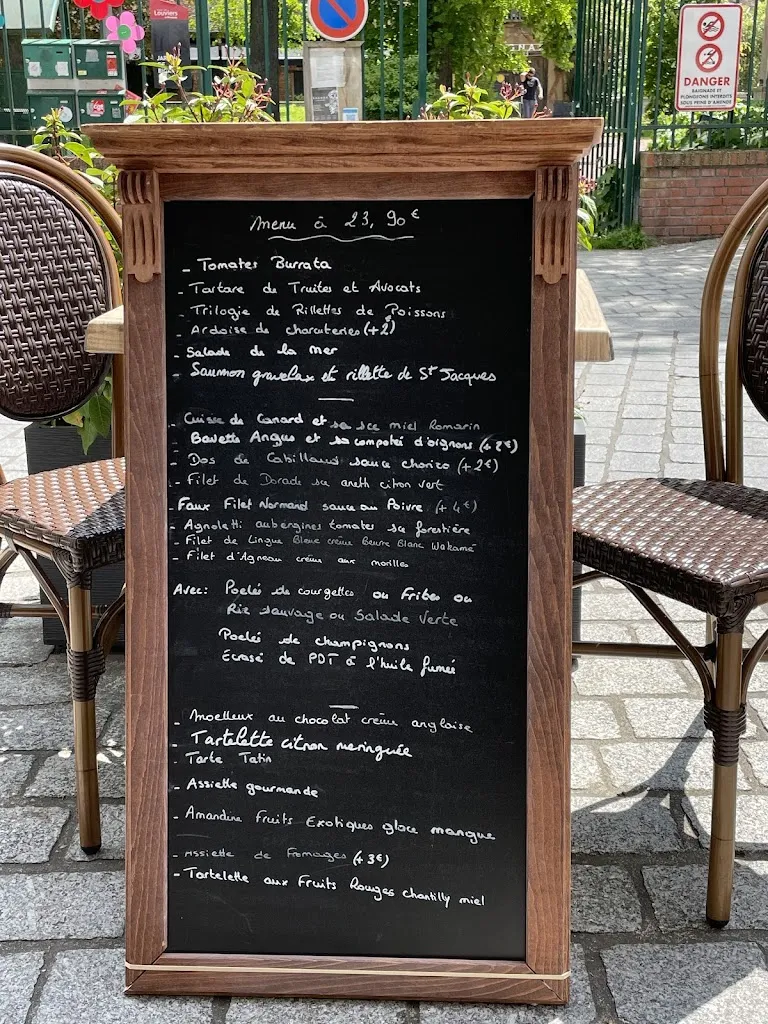 Louviers
DANGER
BAIGNADE ET
PLONGEONS INTERDITS
SOUS PEINE D'AMENDE
Menu à 23,90€
- Tomates Burrata
- Tartare de Truites et Avocats
- Trilogie de Rillettes de Poissons
- Ardoise de charcuteries (+2)
- Salade de la mer
- Saumon gravelax et rillette de St Jacques
- Cuisse de Canard et sa sce miel Romarin
- Bavette Angus et sa compoté d'oignons (+2€)
- Dos de Cabillaud sauce chorizo (+2€)
- Filet de Dorade sce aneth citron vert
- Faux Filet Normand sauce au Poivre (+4€)
- Agnoletti aubergines tomates sce forestière
- Filet de Lingue Bleue crème Beurre Blanc Wakamé
- Filet d'Agneau crème aux morilles
Avec: Poelée de courgettes ou Frites ou
Riz sauvage ou Salade Verte
Poelée de champignons
Ecrasé de PDT à l'huile fumée
- Moelleux au chocolat crème anglaise
- Tartelette citron meringuée
- Tarte Tatin
- Assiette gourmande
- Amandine Fruits Exotiques glace mangue
- Assiette de Fromages (+3€)
- Tartelette aux Fruits Rouges chantilly miel